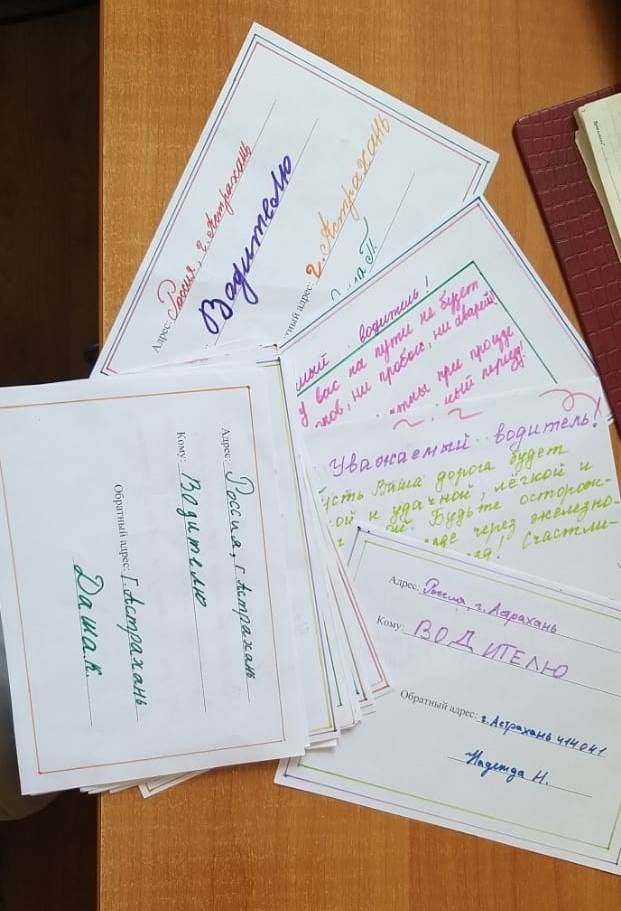 Адрес: Россия, г. Астрахань
Водителю
братный адрес: г. Астрахань
П.
мый водитель!
у вас на пути не будет
ков, ни пробок, ни аварей!
при проезде
мый переезд!
Уважаемый водитель!
усть Ваша дорога будет
кой и удачной, лёгкой и
Будьте осторож-
через железно-
Счастли-
Адрес: Россия, г. Астрахань
Кому: Водителю
Обратный адрес: Г. Астрахань
Даша К.
Адрес: Россия, г. Асрахань
Кому: ВОДИТЕЛЮ
Обратный адрес: г. Астрахань 414041
Надежда Н.